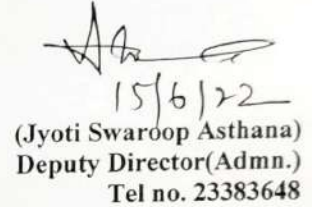 15/6/22
(Jyoti Swaroop Asthana)
Deputy Director(Admn.)
Tel no. 23383648